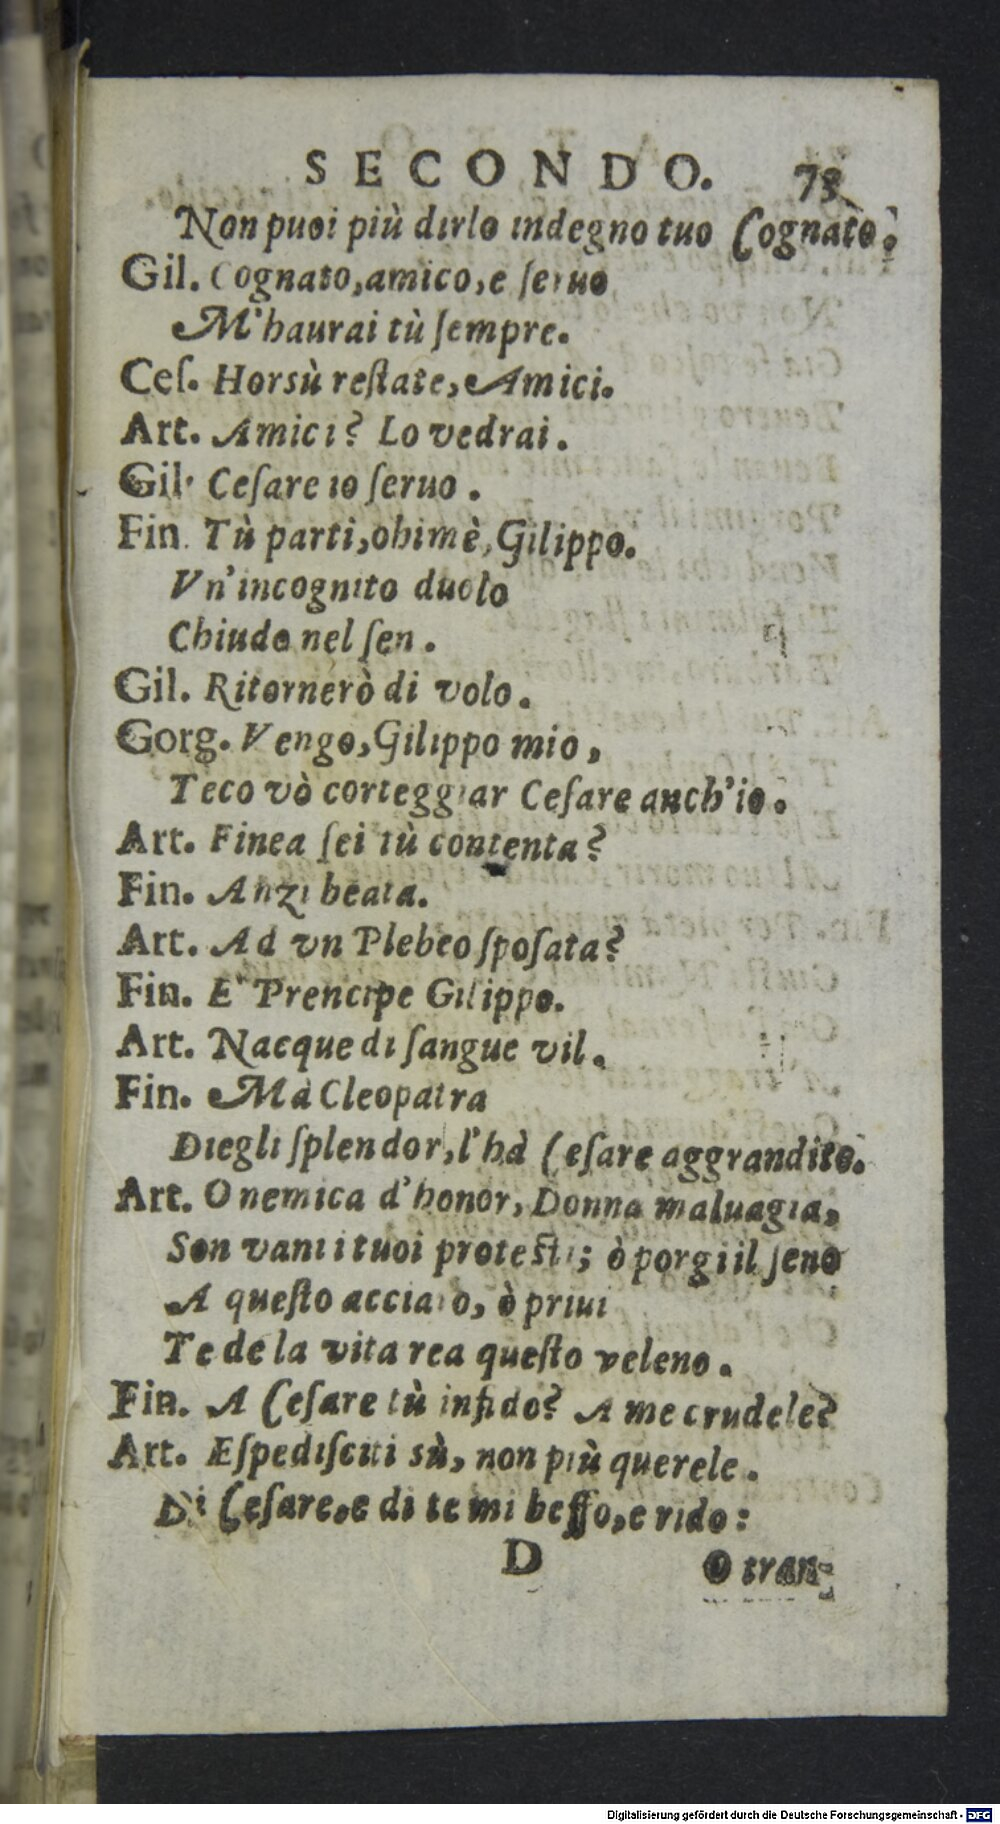 SECONDO. 73
Non puoi più dirlo indegno tuo Cognato.
Gil. Cognato, amico, e seruo
M'haurai tù sempre.
Ceſ. Horsù reſtate, Amici.
Art. Amici? Lo vedrai.
Gil. Ceſare io ſeruo.
Fin. Tù parti, ohimè, Gilippo.
Vn'incognito duolo
Chiudo nel ſen.
Gil. Ritornerò di volo.
Gorg. Vengo, Gilippo mio,
Teco vò corteggiar Ceſare anch'io.
Art. Finea ſei tù contenta?
Fin. Anzi beata.
Art. Ad vn Plebeo ſpoſata?
Fin. E' Prencipe Gilippo.
Art. Nacque di ſangue vil.
Fin. Mà Cleopatra
Diegli ſplendor, l'hà Ceſare aggrandito.
Art. O nemica d'honor, Donna maluagia,
Son vani i tuoi proteſti; ò porgi il ſeno
A queſto acciaio, ò priui
Te de la vita rea queſto veleno.
Fin. A Ceſare tù infido? A me crudele?
Art. Eſpediſciti sù, non più querele.
Di Ceſare, e di te mi beffo, e rido:
D O tran-
Digitalisierung gefördert durch die Deutsche Forschungsgemeinschaft - DFG